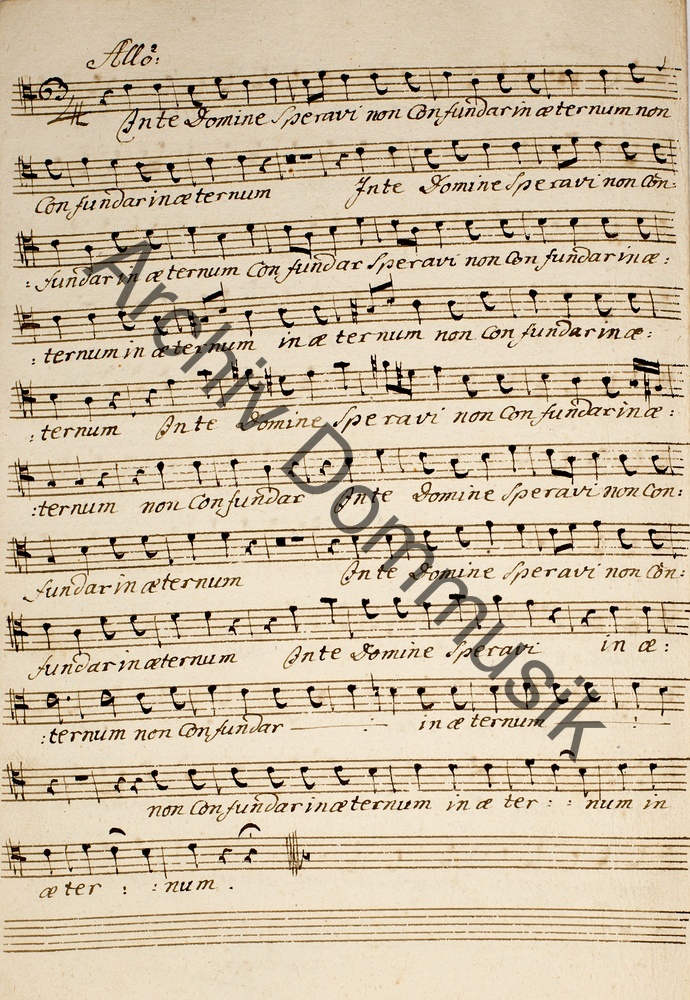 Allo:
In te Domine Speravi non Confundar in æternum non
Confundar in æternum In te Domine Speravi non Con:
:fundar in æternum Confundar Speravi non Confundar in æ:
:ternum in æternum in æternum non Confundar in æ:
:ternum In te Domine Speravi non Confundar in æ:
:ternum non Confundar In te Domine Speravi non Con:
fundar in æternum In te Domine Speravi non Con:
fundar in æternum In te Domine Speravi in æ:
:ternum non Confundar in æternum
non Confundar in æternum in æ ter : : num in
æ ter : : num .
Archiv Dommusik